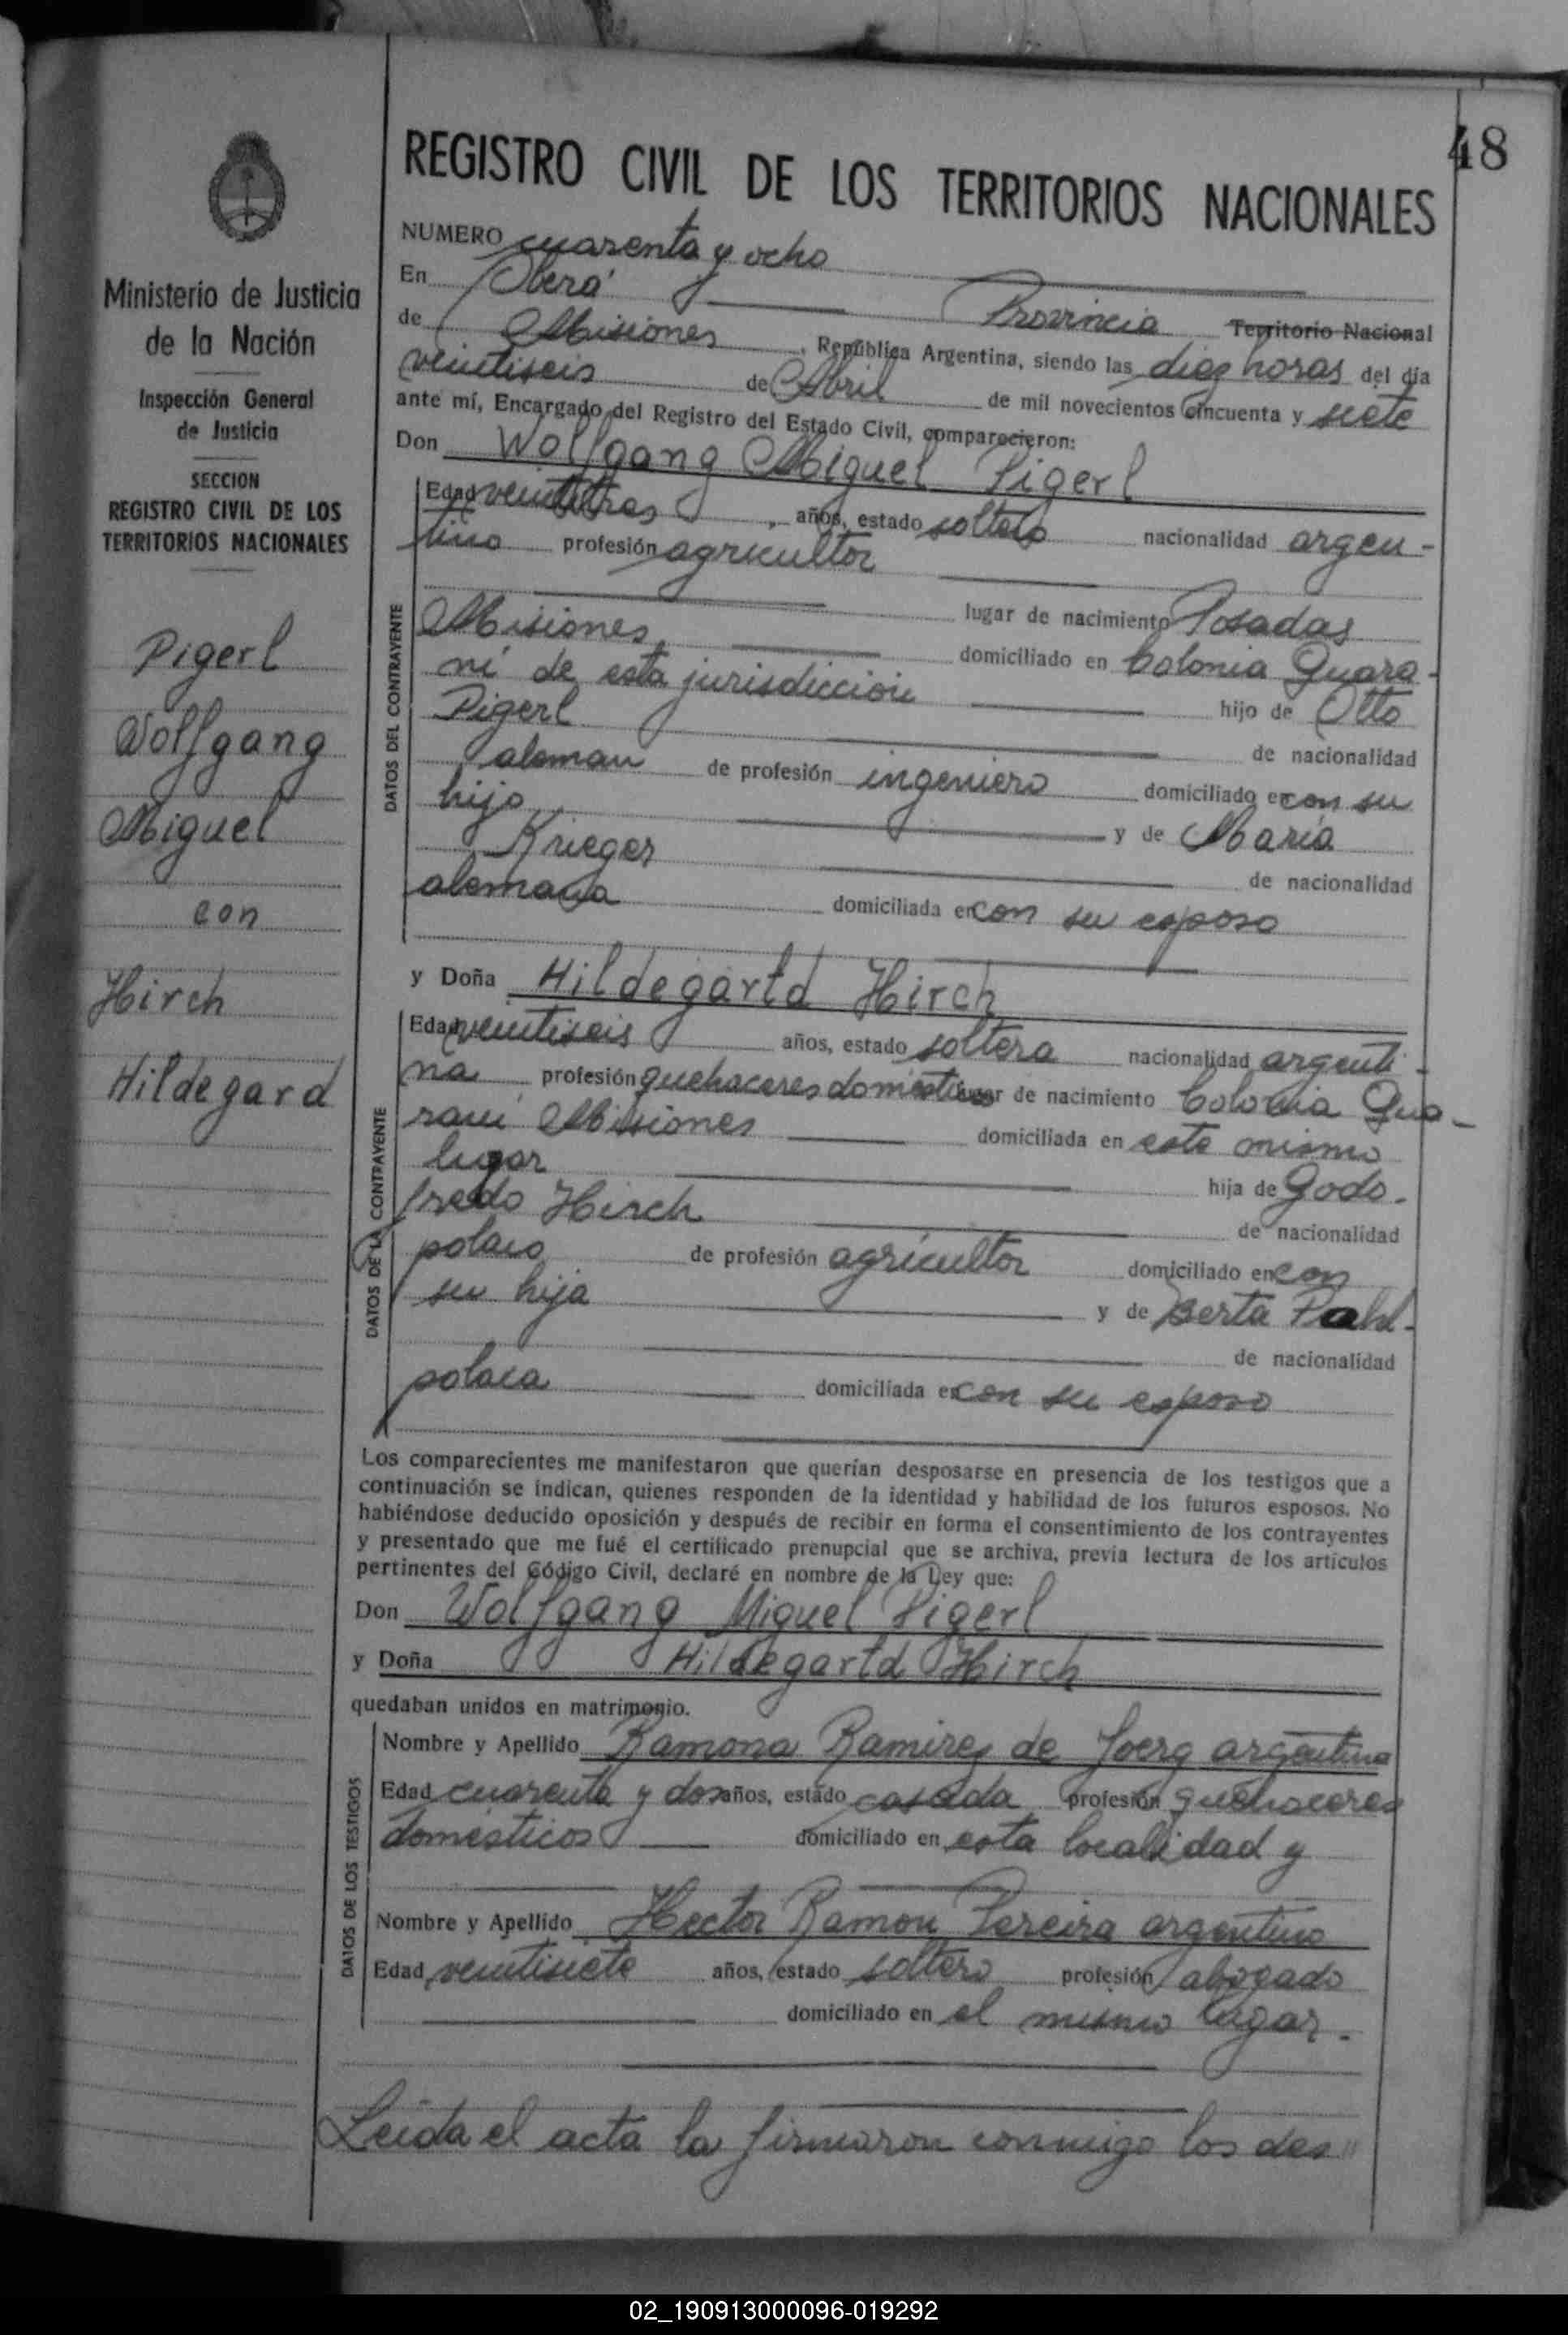 48
REGISTRO CIVIL DE LOS TERRITORIOS NACIONALES
Ministerio de Justicia
de la Nación
Inspección General
de Justicia
SECCION
REGISTRO CIVIL DE LOS
TERRITORIOS NACIONALES
Pigerl
Wolfgang
Miguel
con
Hirch
Hildegard
NUMERO cuarenta y ocho
En Oberá Provincia Territorio Nacional
de Misiones, República Argentina, siendo las diez horas del día
veintiseis de Abril de mil novecientos cincuenta y siete
ante mí, Encargado del Registro del Estado Civil, comparecieron:
Don Wolfgang Miguel Pigerl
DATOS DEL CONTRAYENTE
Edad veintitres, años, estado soltero nacionalidad argen-
tino profesión agricultor
lugar de nacimiento Posadas
Misiones, domiciliado en Colonia Guara-
ní de esta jurisdicción hijo de Otto
Pigerl de nacionalidad
aleman de profesión ingeniero domiciliado en con su
hijo y de María
Krieger de nacionalidad
alemana domiciliada en con su esposo
y Doña Hildegartd Hirch
DATOS DE LA CONTRAYENTE
Edad veintiseis años, estado soltera nacionalidad argenti-
na profesión quehaceres domesticos lugar de nacimiento Colonia Gua-
rani Misiones domiciliada en este mismo
lugar hija de Godo-
fredo Hirch de nacionalidad
polaco de profesión agricultor domiciliado en con
su hija y de Berta Pahl-
de nacionalidad
polaca domiciliada en con su esposo
Los comparecientes me manifestaron que querían desposarse en presencia de los testigos que a
continuación se indican, quienes responden de la identidad y habilidad de los futuros esposos. No
habiéndose deducido oposición y después de recibir en forma el consentimiento de los contrayentes
y presentado que me fué el certificado prenupcial que se archiva, previa lectura de los artículos
pertinentes del Código Civil, declaré en nombre de la Ley que:
Don Wolfgang Miguel Pigerl
y Doña Hildegartd Hirch
quedaban unidos en matrimonio.
DATOS DE LOS TESTIGOS
Nombre y Apellido Ramona Ramirez de Joerg argentina
Edad cuarenta y dos años, estado casada profesión quehaceres
domésticos domiciliado en esta localidad y
Nombre y Apellido Hector Ramon Pereira argentino
Edad veintisiete años, estado soltero profesión abogado
domiciliado en el mismo lugar.
Leida el acta la firmaron conmigo los des"
02_190913000096-019292